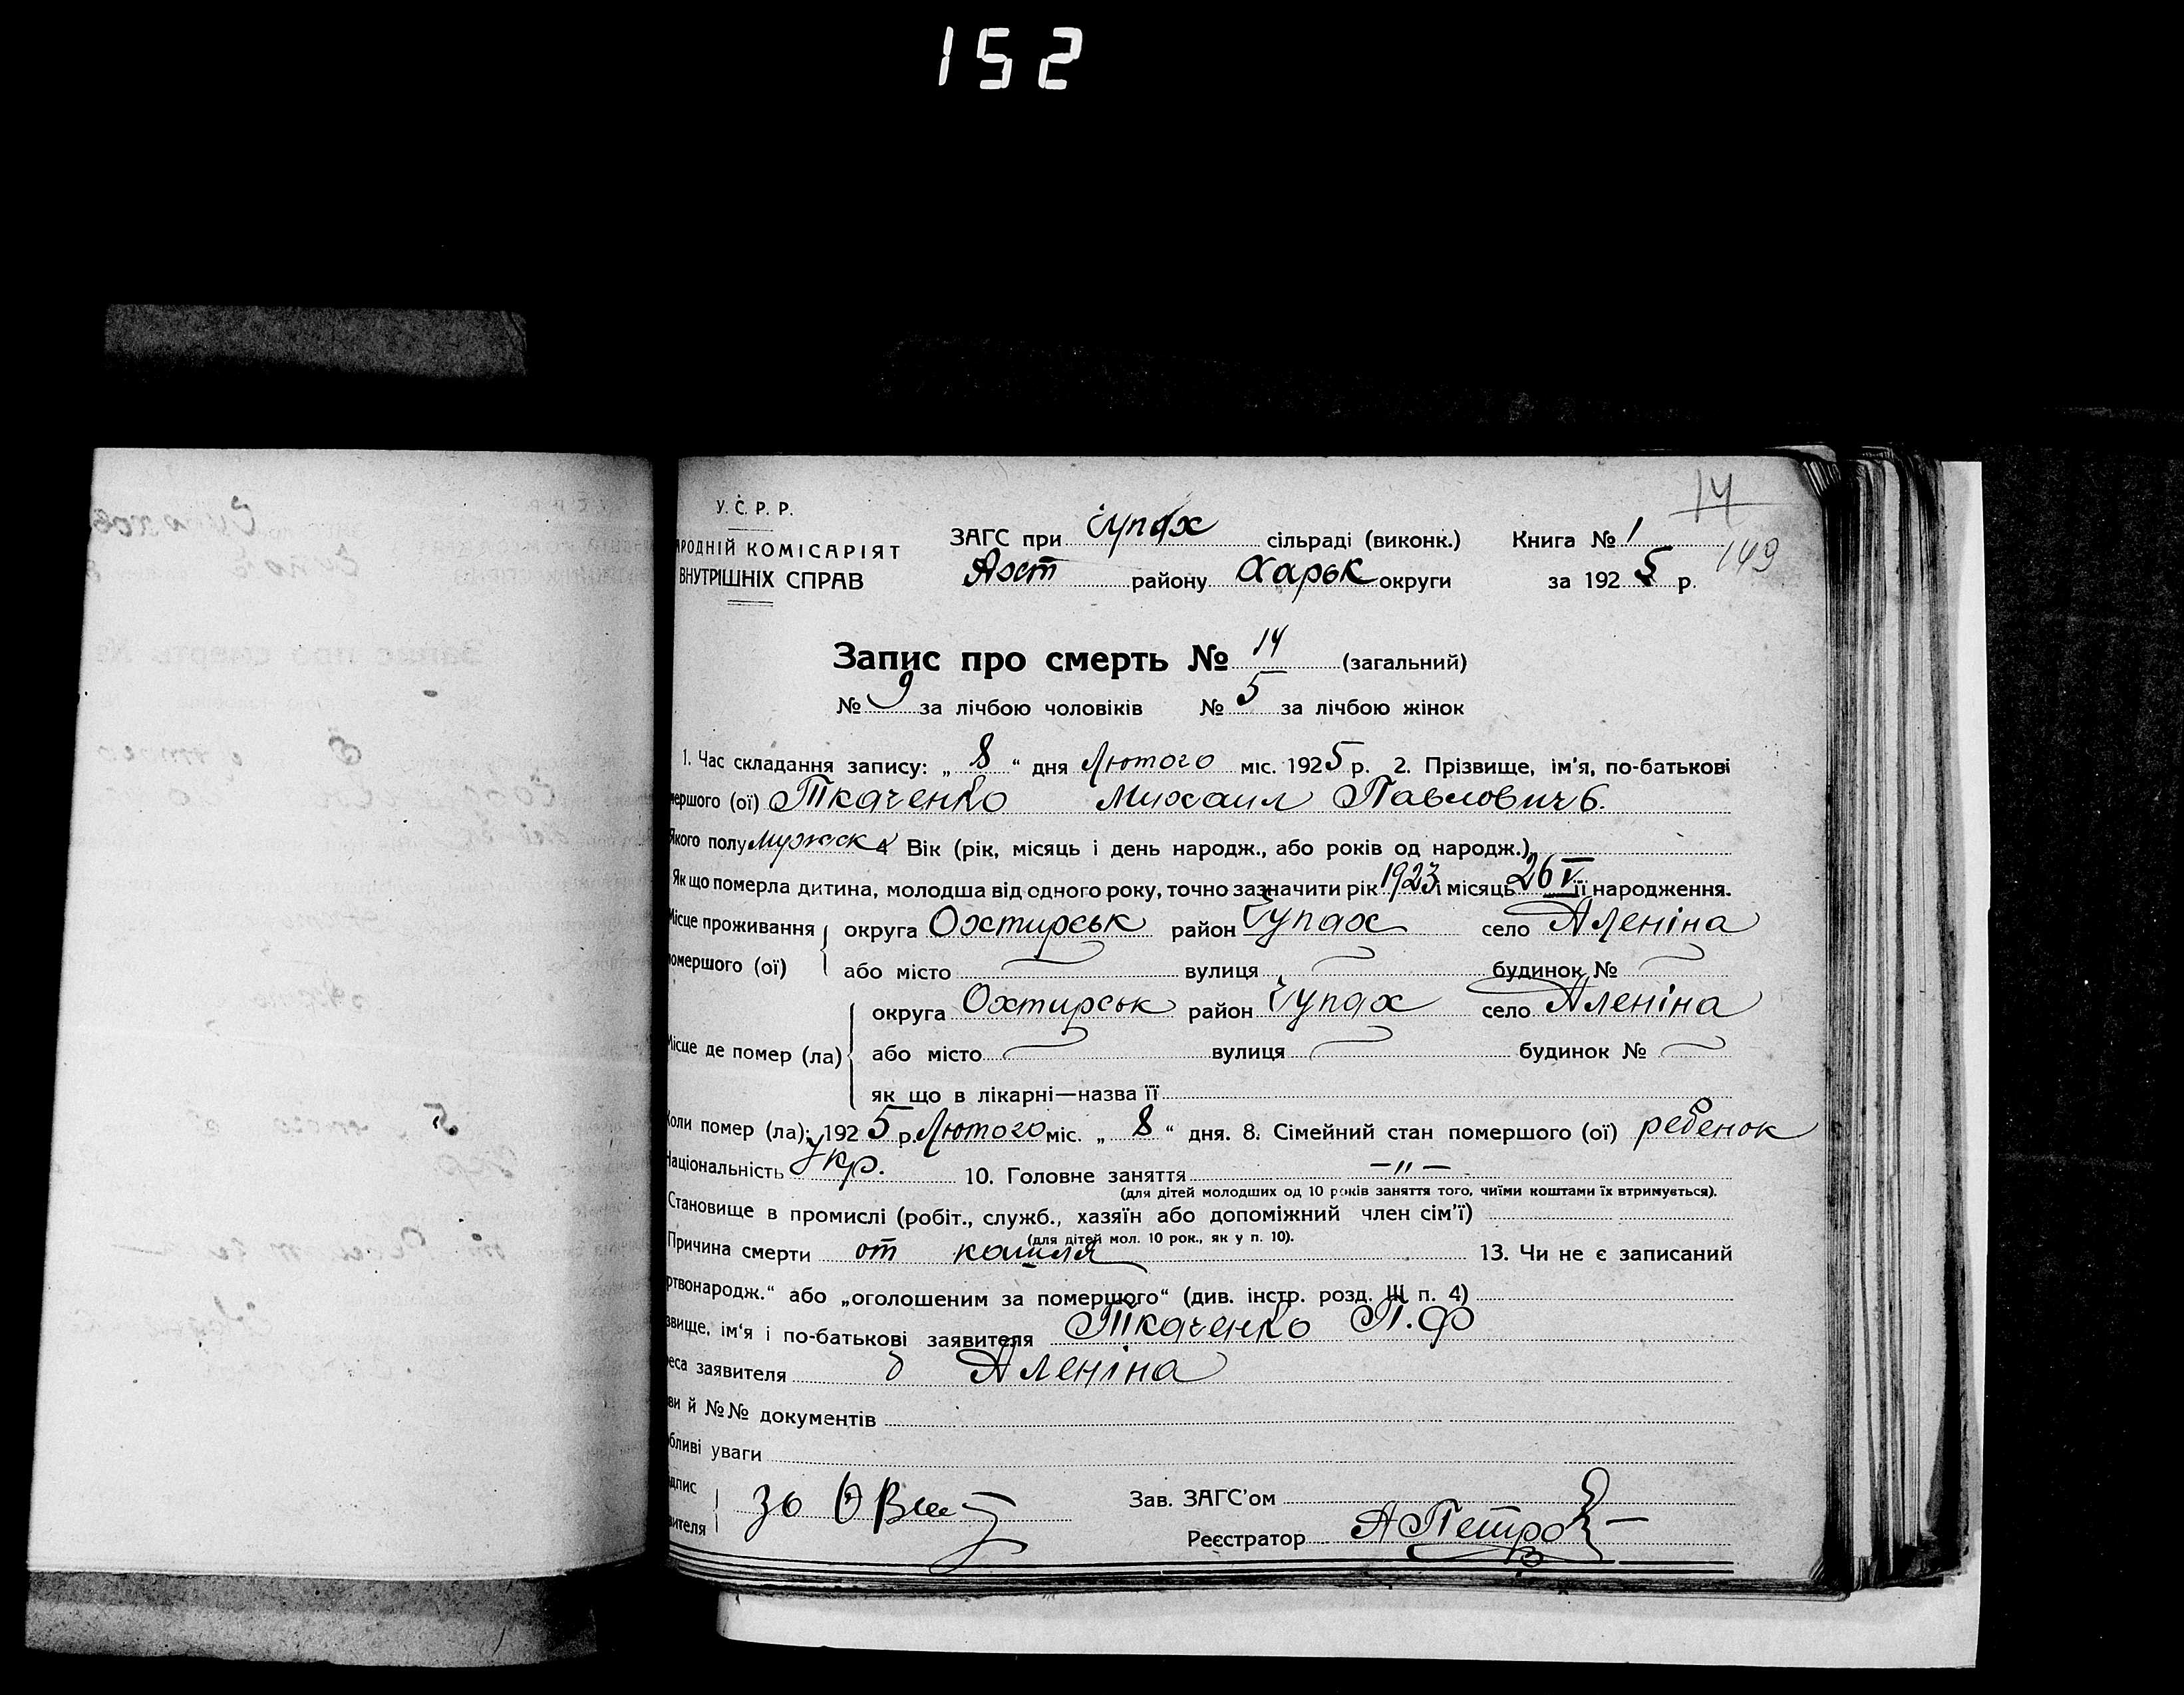 152
14
149
У. С. Р. Р.
РОДНІЙ КОМІСАРІЯТ
ВНУТРІШНІХ СПРАВ
ЗАГС при Чупах сільраді (виконк.) Книга № 1
району Харьк округи за 1925 р.
Запис про смерть № 14 (загальний)
№ 9 за лічбою чоловіків № 5 за лічбою жінок
1. Час складання запису: „ 8 “ дня Лютого міс. 1925 р. 2. Прізвище, ім'я, по-батькові
мершого (ої) Ткаченко Михаил Павлович 6.
Якого полу мужск 4 Вік (рік, місяць і день народж., або років од народж.)
Як що померла дитина, молодша від одного року, точно зазначити рік 1923 і місяць 26 V її народження.
Місце проживання округа Охтирськ район Чупах село Аленіна
омершого (ої) або місто вулиця будинок №
округа Охтирськ район Чупах село Аленіна
Місце де помер (ла) або місто вулиця будинок №
як що в лікарні—назва її
Коли помер (ла): 1925 р. Лютого міс. „ 8 “ дня. 8. Сімейний стан помершого (ої) ребенок
Національність Укр. 10. Головне заняття —"—
(для дітей молодших од 10 років заняття того, чиїми коштами їх втримується).
Становище в промислі (робіт., служб., хазяїн або допоміжний член сім'ї)
(для дітей мол. 10 рок., як у п. 10).
Причина смерти от кашля 13. Чи не є записаний
ртвонародж.“ або „оголошеним за помершого“ (див. інстр. розд. III п. 4)
звище, ім'я і по-батькові заявителя Ткаченко П.Ф
еса заявителя Аленіна
ви й №№ документів
бливі уваги
дпис
вителя
Зав. ЗАГС'ом
Реєстратор А Петро